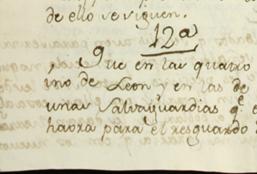 de ello se siguen.
12ª
, Que en las quatro
ino de Leon y en las de
unas Salvaguardias q.e e
haora para el resguardo